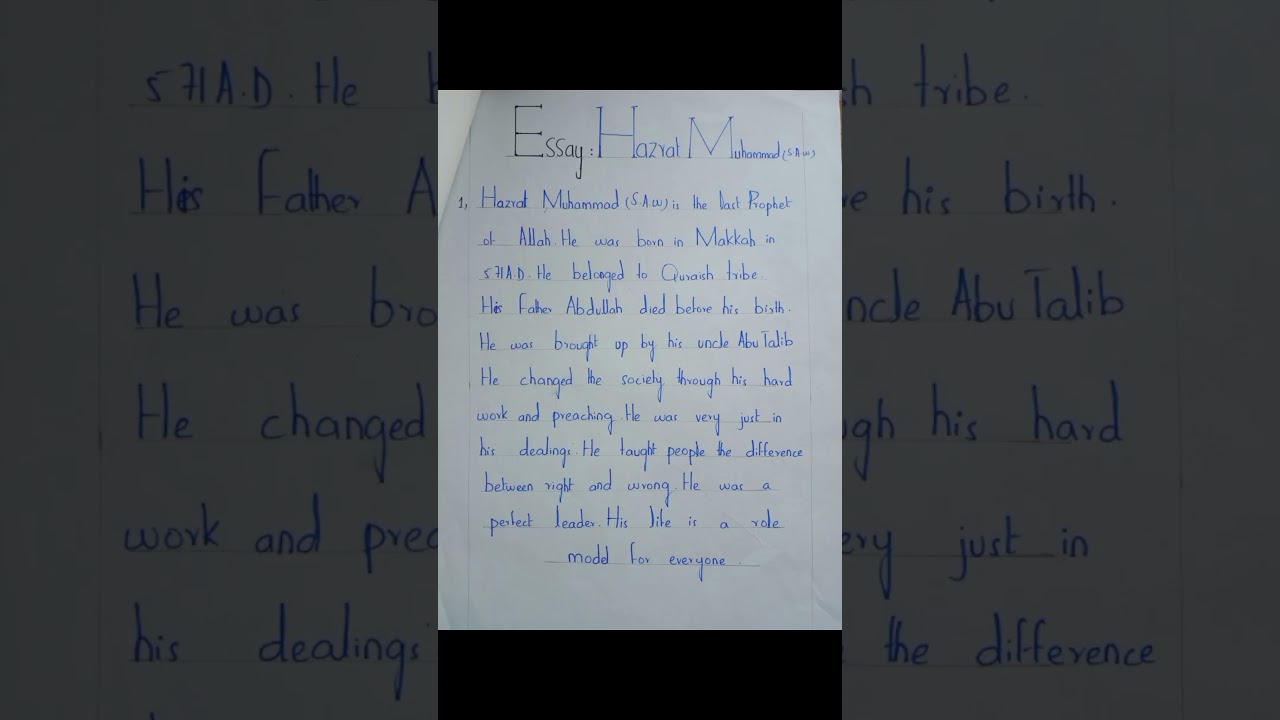 Essay: Hazrat Muhammad (S.A.W)
1, Hazrat Muhammad (S.A.W) is the last Prophet
of Allah. He was born in Makkah in
571A.D. He belonged to Quraish tribe.
His Father Abdullah died before his birth.
He was brought up by his uncle Abu Talib
He changed the society through his hard
work and preaching. He was very just in
his dealings. He taught people the difference
between right and wrong. He was a
perfect leader. His life is a role
model for everyone.